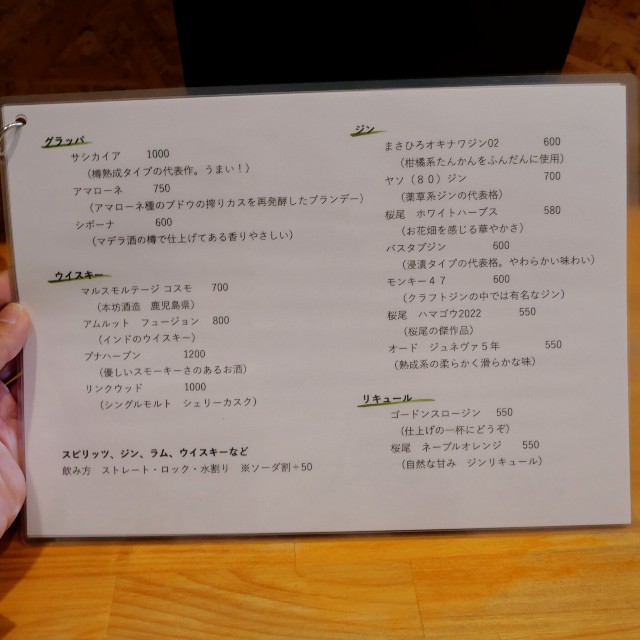 グラッパ
サシカイア 1000
（樽熟成タイプの代表作。うまい！）
アマローネ 750
（アマローネ種のブドウの搾りカスを再発酵したブランデー）
シボーナ 600
（マデラ酒の樽で仕上げてある香りやさしい）
ウイスキー
マルスモルテージ コスモ 700
（本坊酒造 鹿児島県）
アムルット フュージョン 800
（インドのウイスキー）
ブナハーブン 1200
（優しいスモーキーさのあるお酒）
リンクウッド 1000
（シングルモルト シェリーカスク）
スピリッツ、ジン、ラム、ウイスキーなど
飲み方 ストレート・ロック・水割り ※ソーダ割+50
ジン
まさひろオキナワジン02 600
（柑橘系たんかんをふんだんに使用）
ヤソ（８０）ジン 700
（薬草系ジンの代表格）
桜尾 ホワイトハーブス 580
（お花畑を感じる華やかさ）
バスタブジン 600
（浸漬タイプの代表格。やわらかい味わい）
モンキー４７ 600
（クラフトジンの中では有名なジン）
桜尾 ハマゴウ2022 550
（桜尾の傑作品）
オード ジュネヴァ５年 550
（熟成系の柔らかく滑らかな味）
リキュール
ゴードンスロージン 550
（仕上げの一杯にどうぞ）
桜尾 ネーブルオレンジ 550
（自然な甘み ジンリキュール）